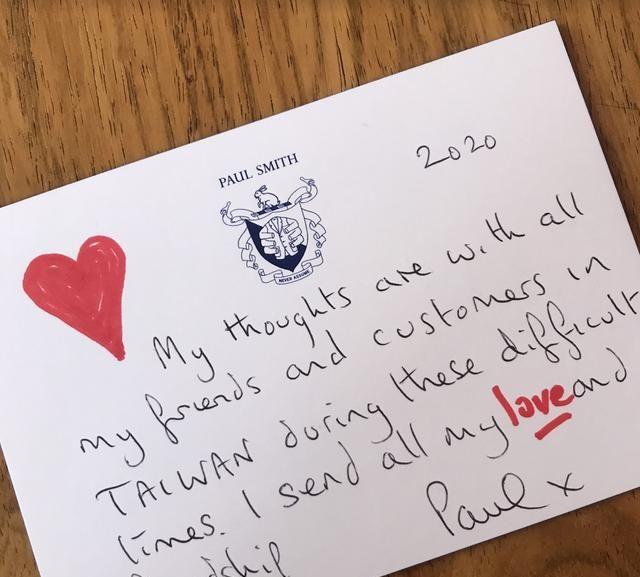 PAUL SMITH
NEVER ASSUME
2020
My thoughts are with all
my friends and customers in
TAIWAN during these difficult
times. I send all my love and
Paul x